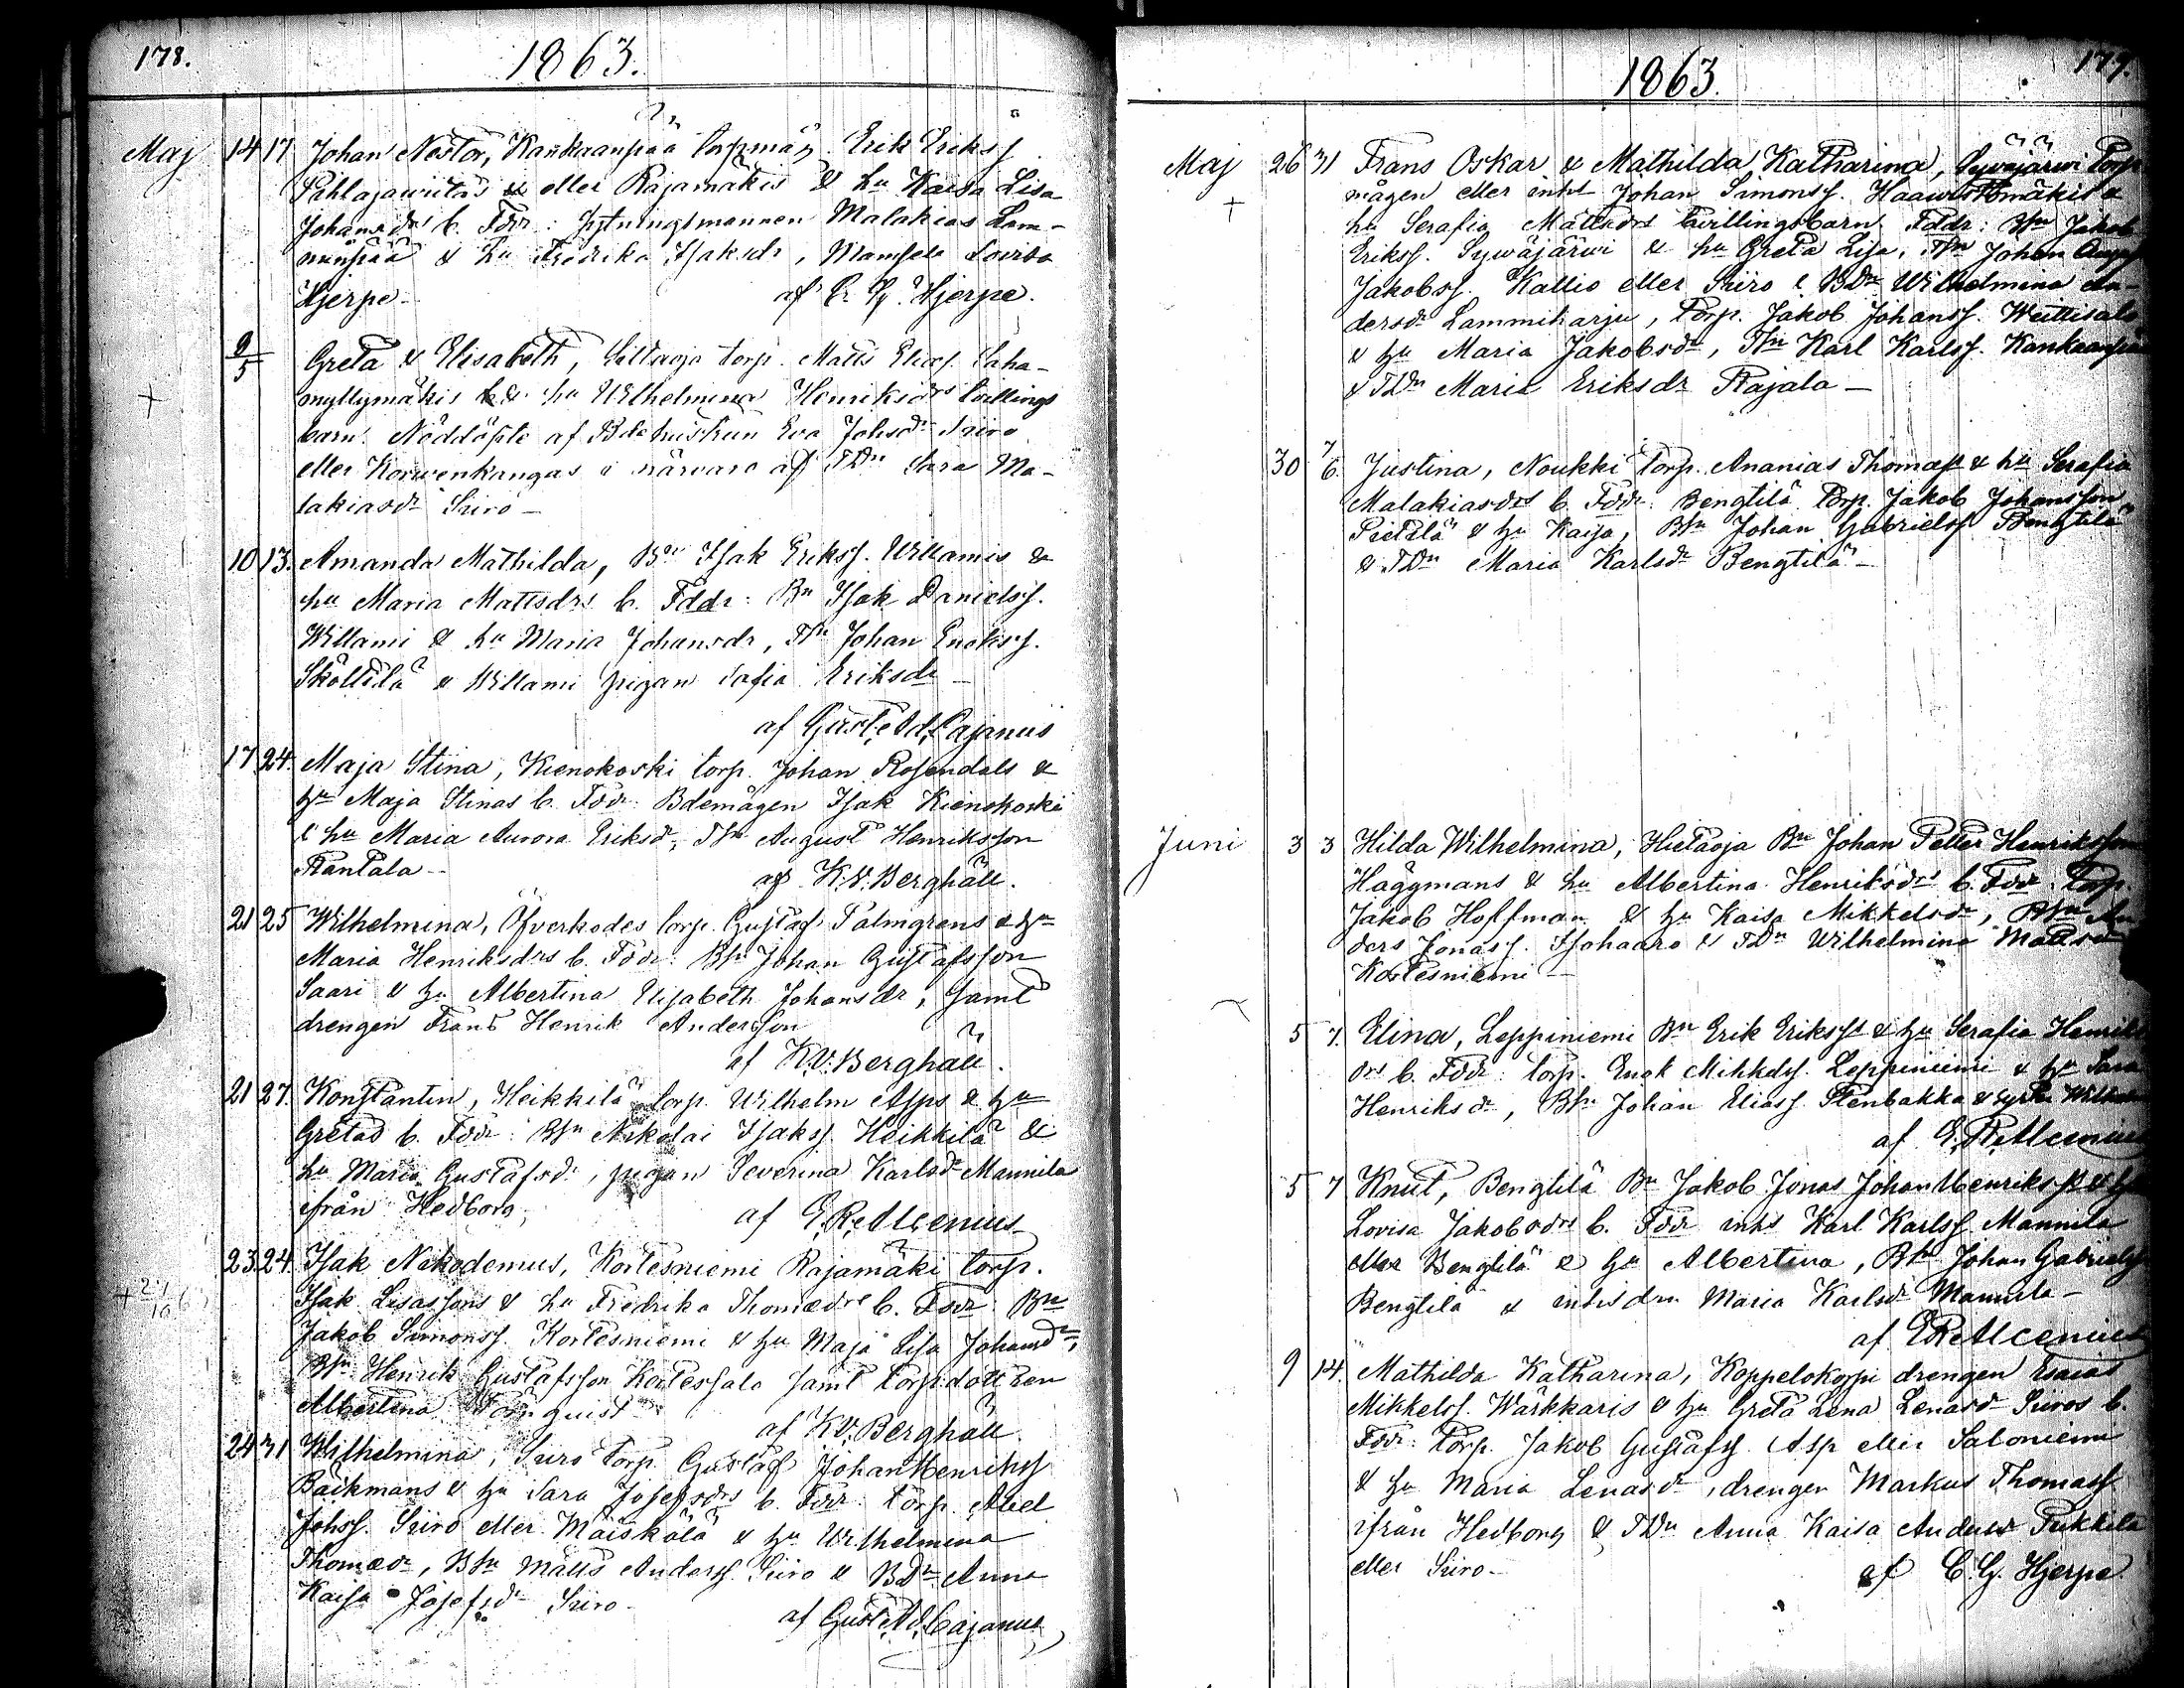 178.
1863.
Maj 14 17 Johan Nestor, Kankaanpää torpmåg Erik Eriksf
Pihlajaviitas & eller Rajamäkis & hu Kaisa Lisa
Johansdrs b. Fddr: Fjtningsmannen Malakias Lam-
minpää & hu Fredrika Isaksdr, Mamsele Lovisa
Hjerpe — af C. G. Hjerpe.
9/5 Greta & Elisabeth, torp. Matts Eliæs. Saha-
myllymäkis & hu Wilhelmina Henriksdrs tvillings
barn. Nöddöpte af Bdehustrun Eva Johsdr Siiro
eller Korwenkangas i närvaro af TDn Sara Ma-
lakiasdr Siiro —
10 13. Amanda Mathilda, Bn Isak Eriksf. Willamis &
hu Maria Mattsdrs b. Fddr: Bn Isak Danielsf.
Willami & hu Maria Johansdr, Johan Enoksf.
Sköltilä & Willami pigan Sofia Eriksdr —
af Gust. Ad. Cajanus
17 24. Maja Stina, Kienokoski torp. Johan Rosendals &
hu Maja Stinas b. Fddr: Bdemågen Isak Kienokoski
& hu Maria Aurora Eriksdr, August Henriksson
Rantala — af K.V. Berghäll.
21 25 Wilhelmina, Öfverkodes torp. Gustaf Palmgrens & hu
Maria Henriksdrs b. Fddr: Johan Gustafsson
Saari & hu Albertina Elisabeth Johansdr, samt
drengen Frans Henrik Andersson
af K.V. Berghäll.
21 27. Konstantin, Heikkilä torp. Wilhelm Asps & hu
Gretas b. Fddr: Nikolai Isaksf. Heikkilä &
hu Maria Gustafsdr, pigan Severina Karlsdr Mannila
ifrån Hedborg, af E. R. Alcenius
23. 24. Isak Nikodemus, Kortesniemi Rajamäki torp.
+ 21/10 63 Isak Lisassons & hu Fredrika Thomædrs b. Fddr: Bn
Jakob Simonsf. Kortesniemi & hu Maja Lisa Johansdr,
Henrik Gustafsson Kortessalo samt torp.dottren
Albertina
af K.V. Berghäll.
24 31 Wilhelmina, Siiro torp. Gustaf Johan Henriksf
Bäckmans & hu Sara Josefsdrs b. Fddr: torp. Abel
Johsf. Siiro eller Mäiskälä & hu Wilhelmina
Thomædr, Matts Andersf. Siiro & BDn Anna
Kaisa Josefsdr Siiro —
af Gust. Ad. Cajanus
179.
1863.
Maj 26 31 Frans Oskar & Mathilda Katharina, Syväjärwi torp
+ mågen eller inhs Johan Simonsf. &
hu Serafia Mattsdrs tvillingsbarn. Fddr: Jakob
Eriksf. Sywäjärwi & hu Greta Lisa, Johan
Jakobsf. Kallio eller Siiro & BDn Wilhelmina An-
dersdr Lammiharju, torp. Jakob Johansf.
& hu Maria Jakobsdr, Karl Karlsf. Kankaanpää
& TDn Maria Eriksdr Rajala —
30 7/6. Justina, Noukki torp. Ananias Thomæs & hu Serafia
Malakiasdrs b. Fddr: Bengtilä torp. Jakob Johansson
Pietilä & hu Kaisa, Johan Gabrielsf. Bengtilä
& TDn Maria Karlsdr Bengtilä —
Juni 3 3 Hilda Wilhelmina, Hietaoja Bn Johan Petter Henriksson
Häggmans & hu Albertina Henriksdrs b. Fddr: torp.
Jakob Hoffman & hu Kaisa Mikkelsdr, An
ders Jonasf. Isohaaro & TDn Wilhelmina Mattsdr
Kortesniemi —
5 7. Elina, Leppiniemi Bn Erik Eriksfs & hu Serafia Henriks
drs b. Fddr: torp. Enok Mikkelsf. Leppiniemi & hu Sara
Henriksdr, Johan Eliasf. Stenbakka &
af E. R. Alcenius
5 7 Knut, Bengtilä Bn Jakob Jonas Johan Henriksfs & hu
Lovisa Jakobsdrs b. Fddr inhs Karl Karlsf Mannila
eller Bengtilä & hu Albertina, Johan Gabrielsf
Bengtilä & inhsdrn Maria Karlsdr Mannila —
af E R Alcenius
9 14. Mathilda Katharina, Koppelokorpi drengen Esaias
Mikkelsf. Wärkkaris & hu Greta Lena Lenasdr Siiros b.
Fddr: torp. Jakob Gustafsf. Asp eller Saloniemi
& hu Maria Lenasdr, drengen Markus Thomasf
ifrån Hedborg & TDn Anna Kaisa Andersdr
eller Siiro — af C. G. Hjerpe